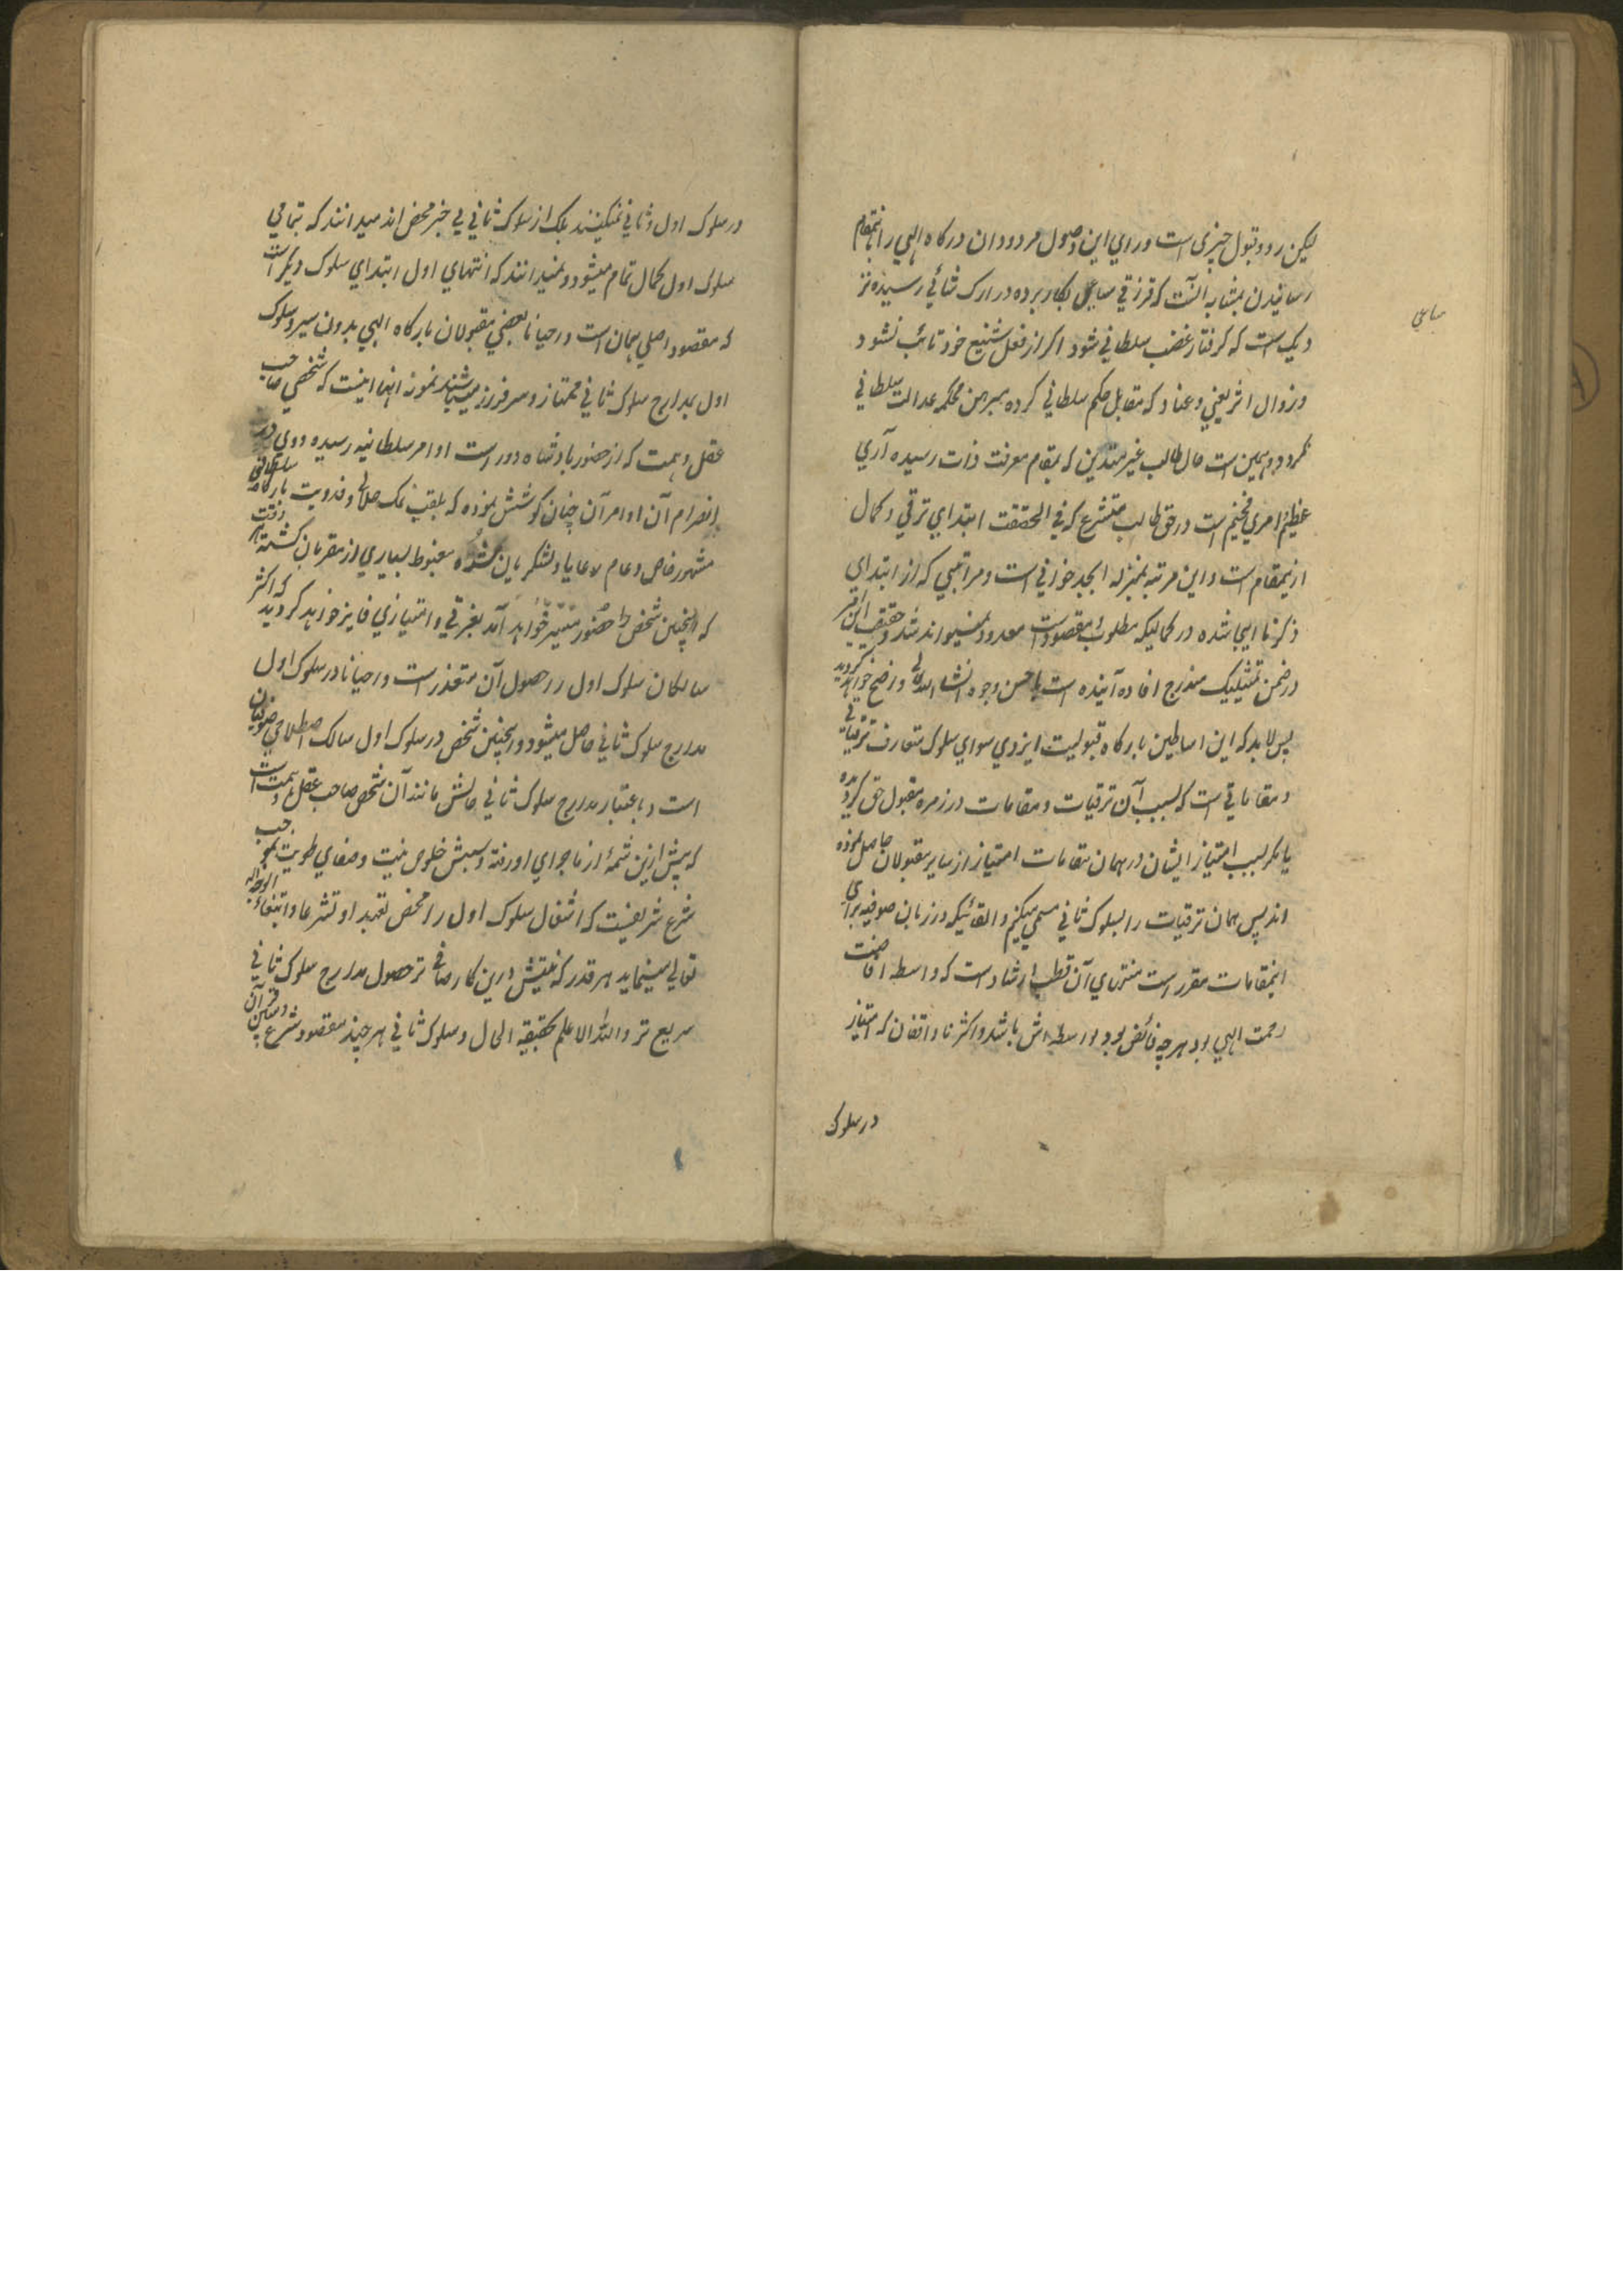 لیکن رد و قبول چیزی است ورای این وصول مردودان درگاه الهی را باینمقام
رسانیدن بمثابه آنست که قزاقی مساعی بکار برده در ارک شاهی رسیده نز
دیک است که گرفتار غضب سلطانی شود اگر از فعل شنیع خود تائب نشود و
و زوال اثر بغی و عناد که مقابل حکم سلطانی کرده مبرهن محکمه عدالت سلطانی
نگردد و همین است حال طالب غیر متدین که بمقام معرفت ذات رسیده آری
عظیم امری فخیم است در حق طالب متشرع که فی الحقیقت ابتدای ترقی و کمال
ازینمقام است و این مرتبه بمنزله ابجد خوانی است و مراتبی که از ابتدای
ذکر تا اینجا شده در کمالیکه مطلوب مقصود است معدود نمیتواند شد و حقیقت این امر
در ضمن تمثیلیکه مندرج افاده آینده است باحسن وجوه انشاء الله تعالی واضح خواهد گردید
پس لابد که این اساطین بارگاه قبولیت ایزدی سوای سلوک متعارف ترقیاتی
و مقاماتی است که بسبب آن ترقیات و مقامات در زمره مقبول حق گردیده
یا مگر بسبب امتیاز ایشان در همان مقامات امتیاز از سایر مقبولان حاصل نموده
اند پس همان ترقیات را بسلوک ثانی مسمی میکنیم و القائیکه در زبان صوفیه برای
اینمقامات مقرر است منتهای آن قطب ارشاد است که واسطه افاضت
رحمت الهی بود هر چه فائض بود بواسطه اش باشد و اکثر ناواقفان که امتیاز
در سلوک
مساعی
در سلوک اول و ثانی نمیکنند بلک از سلوک ثانی بی خبر محض اند میدانند که بتمامی
سلوک اول کمال تمام میشود و نمیدانند که انتهای اول ابتدای سلوک دیگر است
که مقصود اصلی همان است و احیانا بعضی مقبولان بارگاه الهی بدون سیر و سلوک
اول بمدارج سلوک ثانی ممتاز و سرفراز میباشند نمونه اینها اینست که شخصی صاحب
عقل و همت که از حضور پادشاه دور است اوامر سلطانیه رسیده و وی در
انصرام آن اوامر آن چنان کوشش نموده که بلقب نمک حلالی و فدویت بارگاه سلطانی
مشهور خاص و عام رعایا و لشکریان شده مغبوط بسیاری از مقربان گشته
که اینچنین شخص را حضور میسر خواهد آمد بغیر قی و امتیازی فایز خواهد گردید که اکثر
سالکان سلوک اول را حصول آن متعذر است و احیانا در سلوک اول
مدارج سلوک ثانی حاصل میشود و اینچنین شخص در سلوک اول سالک اصطلاحی صوفیان
است و باعتبار مدارج سلوک ثانی حالش مانند آن شخص صاحب عقل و همت است
که پیش ازین شمهٔ از ماجرای او رفته و سببش خلوص نیت و صفای طویت بموجب
شرع شریفست که اشغال سلوک اول را محض تعبدا و تشرعا و ابتغاء لوجه الله
تعالی مینماید هر قدر که نیتش درین کار صافی تر حصول مدارج سلوک ثانی
سریع تر والله الاعلم بحقیقة الحال و سلوک ثانی هر چند مقصود شرع